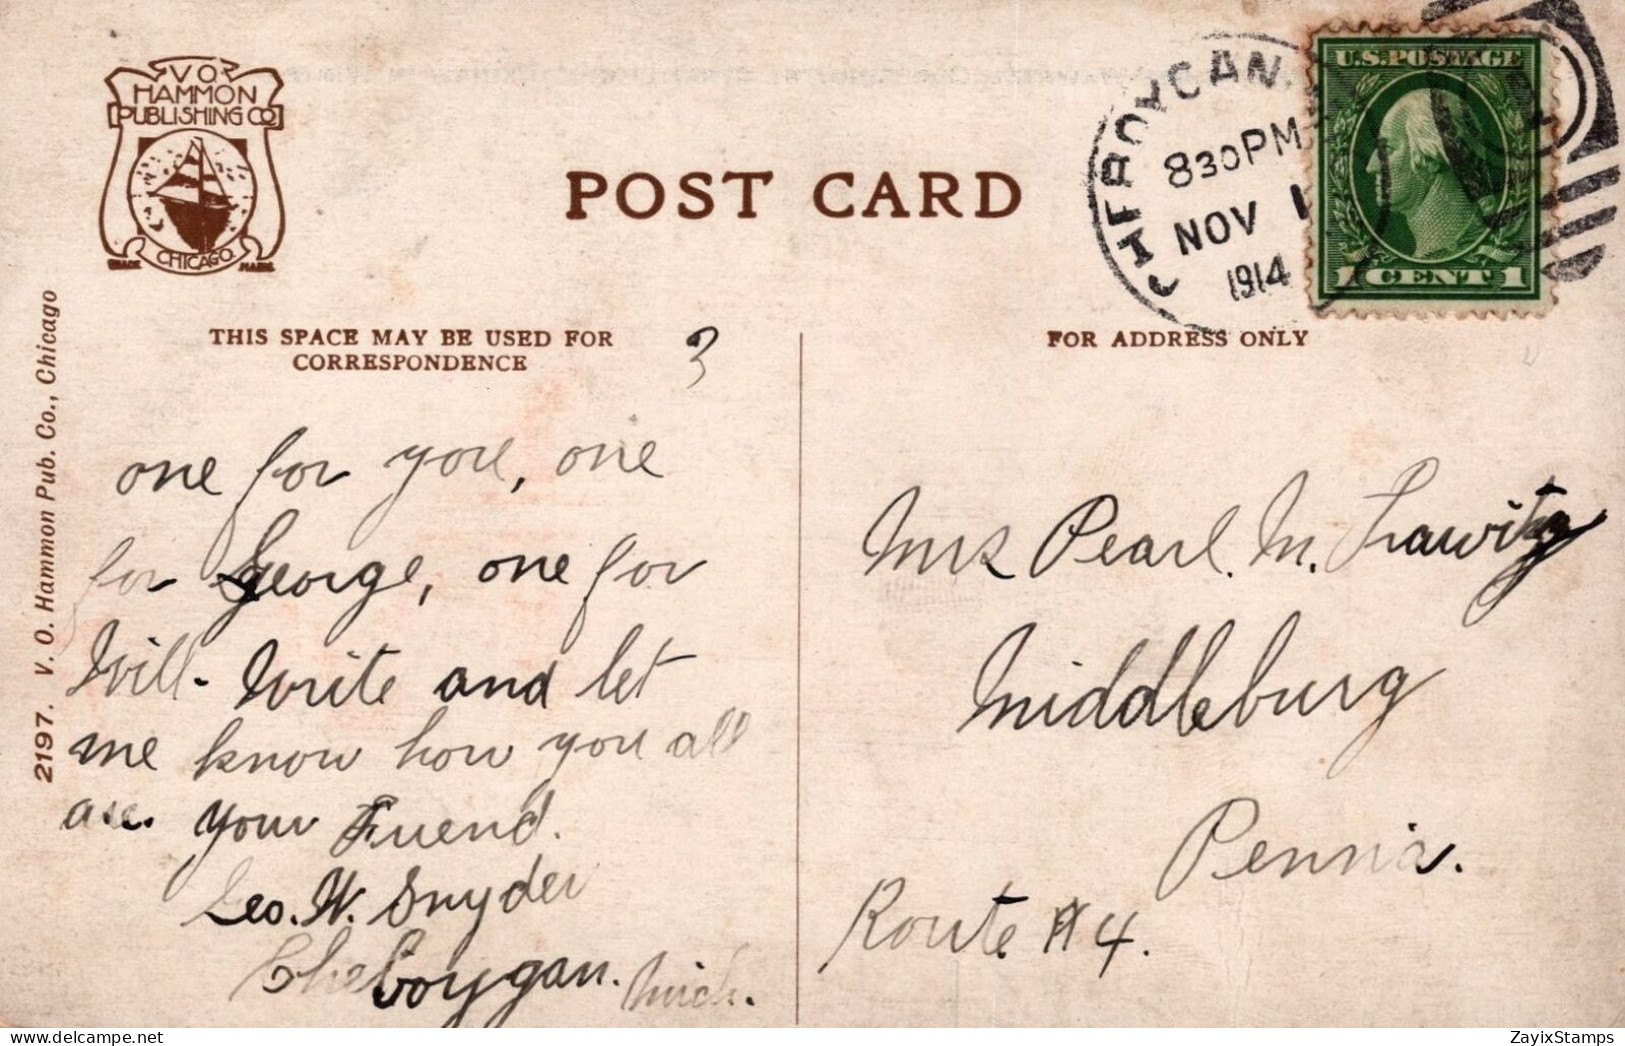 V O
HAMMON
PUBLISHING CO
CHICAGO
TRADE MARK
POST CARD
CHEBOYGAN,
830PM
NOV 1
1914
U.S. POSTAGE
1 CENT 1
THIS SPACE MAY BE USED FOR
CORRESPONDENCE
3
FOR ADDRESS ONLY
2197. V. O. Hammon Pub. Co., Chicago
one for you, one
for George, one for
Will. Write and let
me know how you all
are. Your Friend.
Geo. W. Snyder
Cheboygan. Mich.
Mrs Pearl. M. Frawitz
Middleburg
Penn'a.
Route #4.
ZayixStamps